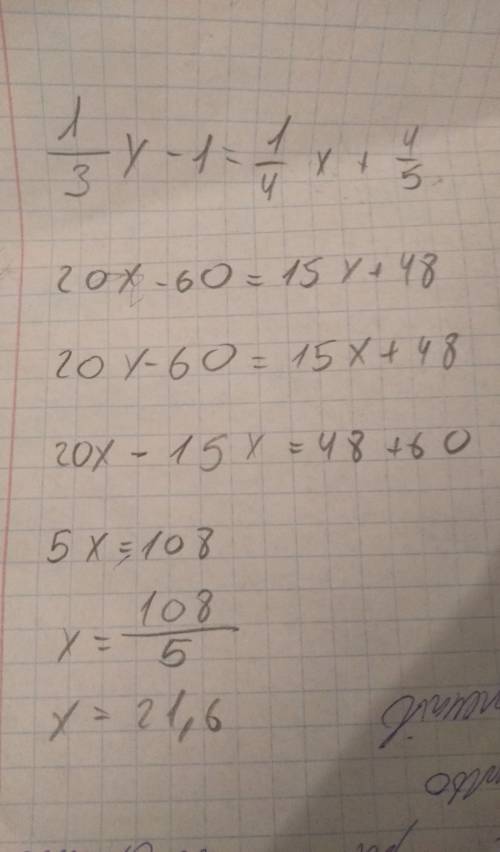 1/3 x - 1 = 1/4 x + 4/5
20x - 60 = 15x + 48
20x - 60 = 15x + 48
20x - 15x = 48 + 60
5x = 108
x = 108/5
x = 21,6